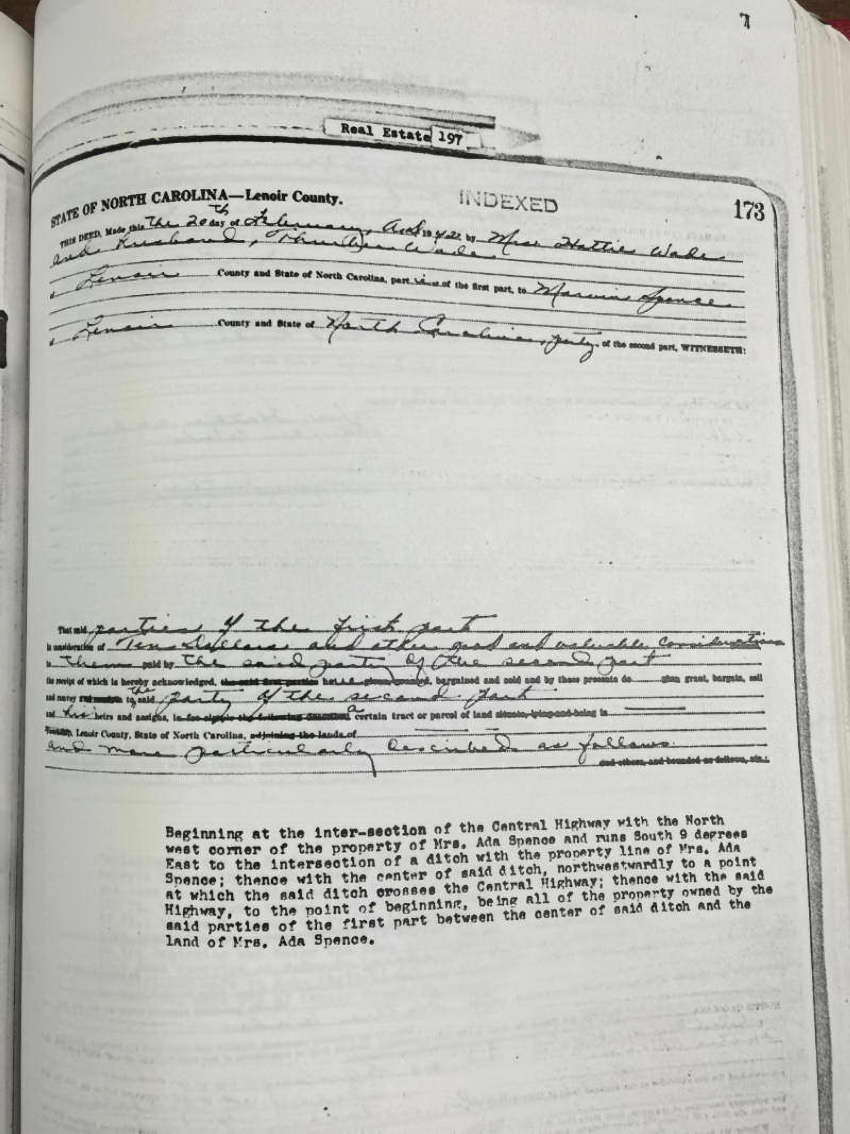 7
Real Estate 197
INDEXED
173
STATE OF NORTH CAROLINA—Lenoir County.
THIS DEED, Made this The 20th day of February, A.D. 1942 by Mrs. Hattie Wade
and husband, Wade
Lenoir County and State of North Carolina, parties of the first part, to Marvin Spence
Lenoir County and State of North Carolina, party of the second part, WITNESSETH:
That said parties of the first part
in consideration of Ten Dollars and other good and valuable considerations
to them paid by the said party of the second part
the receipt of which is hereby acknowledged, bargained and sold and by these presents do give, grant, bargain, sell
and convey to the said party of the second part
and his heirs and assigns, a certain tract or parcel of land situate, lying and being in
Township, Lenoir County, State of North Carolina, adjoining the lands of
and more particularly described as follows.
and others, and bounded as follows, viz.:
Beginning at the inter-section of the Central Highway with the North
west corner of the property of Mrs. Ada Spence and runs South 9 degrees
East to the intersection of a ditch with the property line of Mrs. Ada
Spence; thence with the center of said ditch, northwestwardly to a point
at which the said ditch crosses the Central Highway; thence with the said
Highway, to the point of beginning, being all of the property owned by the
said parties of the first part between the center of said ditch and the
land of Mrs. Ada Spence.